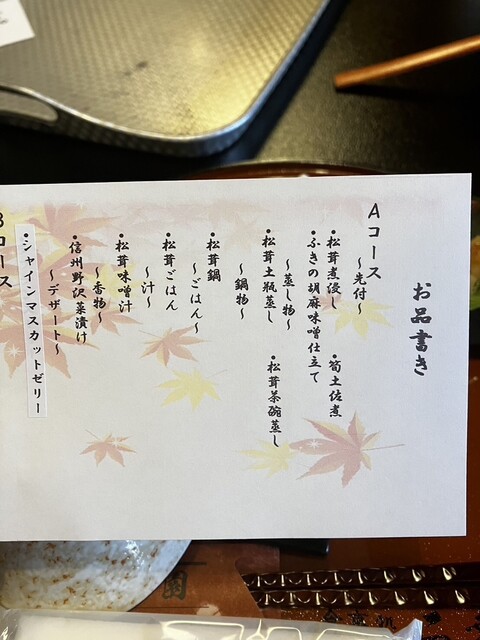 お品書き
Aコース
〜先付〜
•松茸煮浸し　•筍土佐煮
•ふきの胡麻味噌仕立て
〜蒸し物〜
•松茸土瓶蒸し　•松茸茶碗蒸し
〜鍋物〜
•松茸鍋
〜ごはん〜
•松茸ごはん
〜汁〜
•松茸味噌汁
〜香物〜
•信州野沢菜漬け
〜デザート〜
•シャインマスカットゼリー
Bコース
園